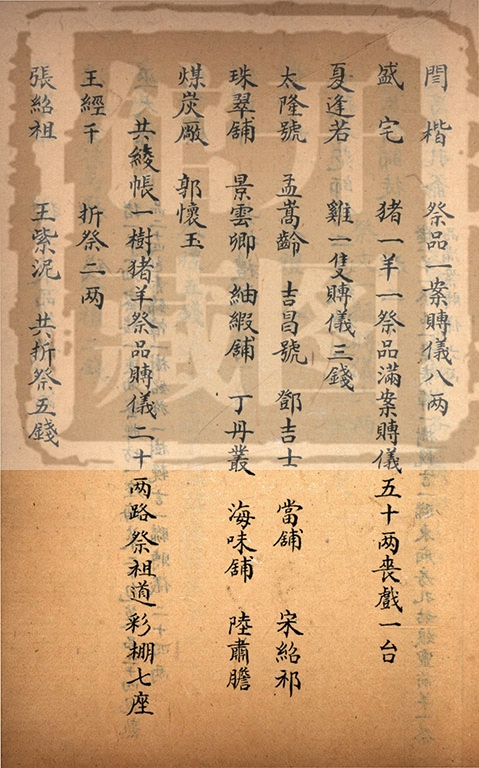 閆楷 祭品一案賻儀八两
盛宅 猪一羊一祭品滿案賻儀五十两喪戲一台
夏逢若 雞一隻賻儀三錢
太隆號 孟嵩齡 吉昌號 鄧吉士 當舖 宋紹祁
珠翠舖 景雲卿 紬緞舖 丁丹叢 海味舖 陸肅膽
煤炭厰 郭懷玉
共綾帳一樹猪羊祭品賻儀二十两路祭祖道彩棚七座
王經千 折祭二两
張紹祖 王紫泥 共折祭五錢